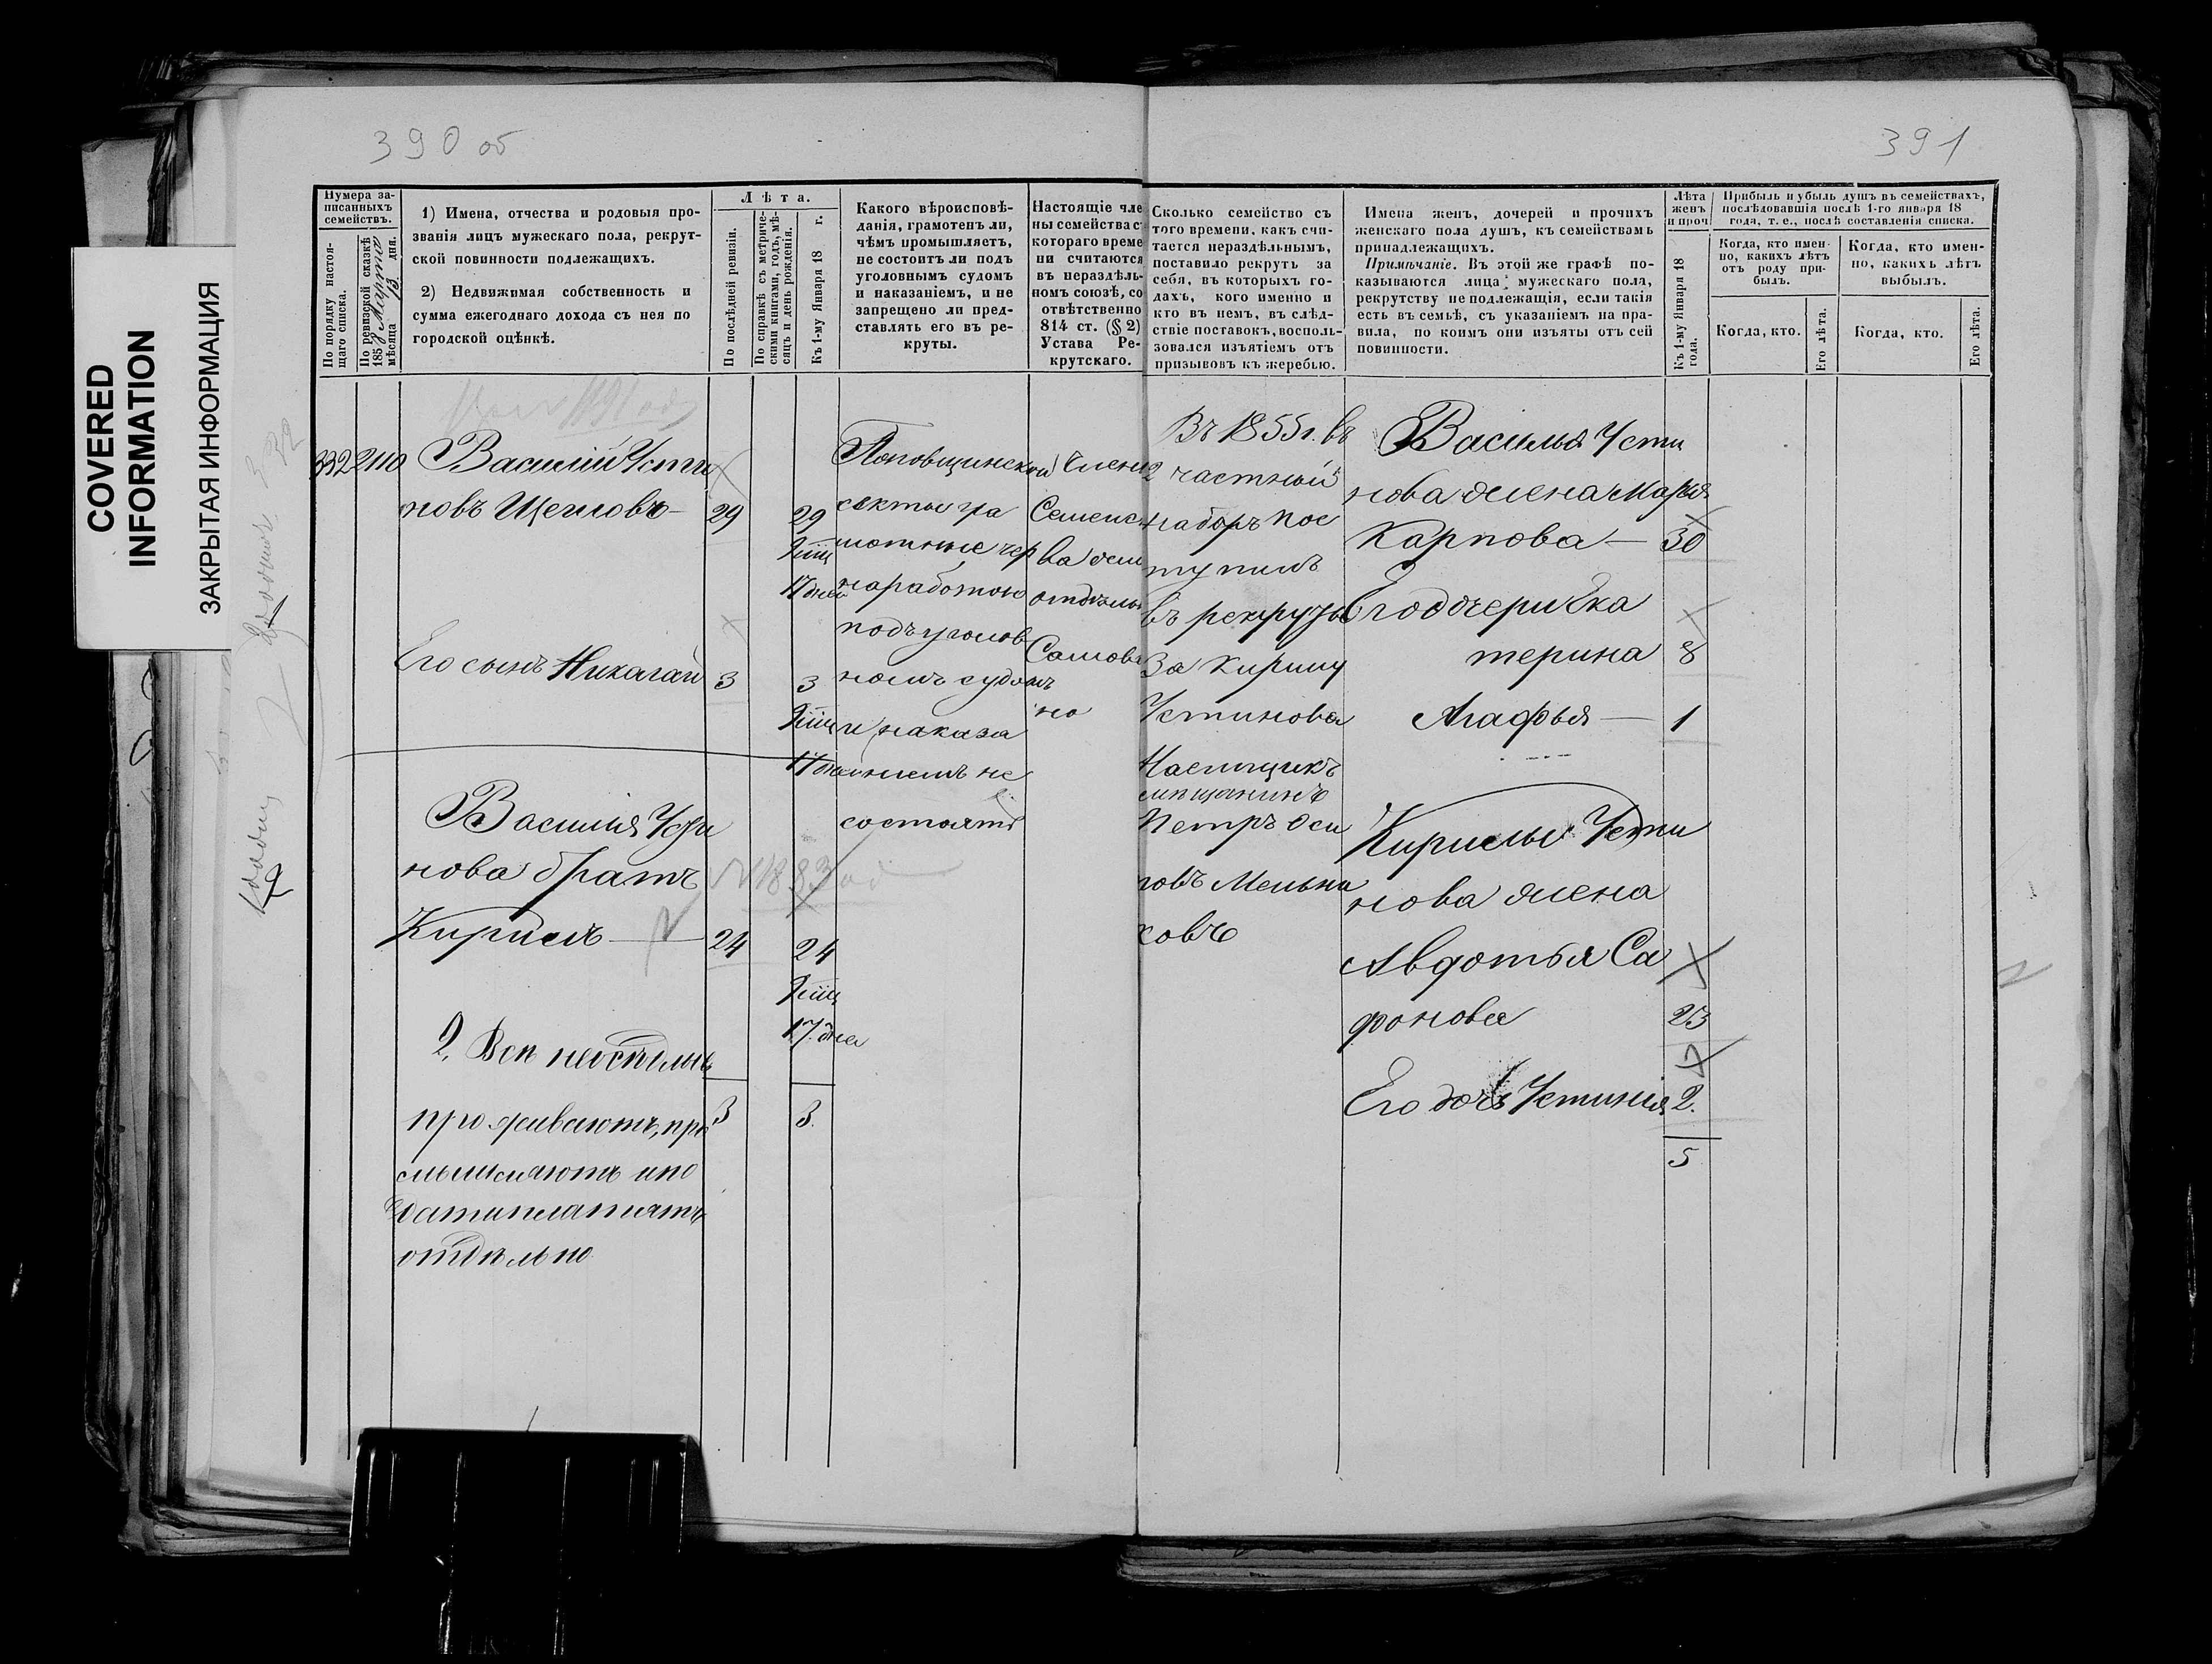 390 об
391
COVERED
INFORMATION
ЗАКРЫТАЯ ИНФОРМАЦИЯ
Нумера за-
писанныхъ
семействъ.
По порядку настоя-
щаго списка.
По ревизской сказкѣ
185 Марта
мѣсяца 13 дня.
1) Имена, отчества и родовыя про-
званія лицъ мужескаго пола, рекрут-
ской повинности подлежащихъ.
2) Недвижимая собственность и
сумма ежегоднаго дохода съ нея по
городской оцѣнкѣ.
Лѣта.
По послѣдней ревизіи.
По справкѣ съ метриче-
скими книгами, годъ, мѣ-
сяцъ и день рожденія.
Къ 1-му Января 18 г.
Какого вѣроисповѣ-
данія, грамотенъ ли,
чѣмъ промышляетъ,
не состоитъ ли подъ
уголовнымъ судомъ
и наказаніемъ, и не
запрещено ли пред-
ставлять его въ ре-
круты.
Настоящіе чле
ны семейства с
котораго време
ни считаются
въ нераздѣль-
номъ союзѣ, со
отвѣтственно
814 ст. (§ 2)
Устава Ре-
крутскаго.
Сколько семейство съ
того времени, какъ счи-
тается нераздѣльнымъ,
поставило рекрутъ за
себя, въ которыхъ го-
дахъ, кого именно и
кто въ немъ, въ слѣд-
ствіе поставокъ, восполь-
зовался изъятіемъ отъ
призывовъ къ жеребью.
Имена женъ, дочерей и прочихъ
женскаго пола душъ, къ семействамъ
принадлежащихъ.
Примѣчаніе. Въ этой же графѣ по-
казываются лица мужескаго пола,
рекрутству не подлежащія, если такія
есть въ семьѣ, съ указаніемъ на пра-
вила, по коимъ они изъяты отъ сей
повинности.
Лѣта
женъ
и проч
Къ 1-му Января 18
года.
Прибыль и убыль душъ въ семействахъ,
послѣдовавшія послѣ 1-го января 18
года, т. е., послѣ составленія списка.
Когда, кто имен-
но, какихъ лѣтъ
отъ роду при-
былъ.
Когда, кто.
Его лѣта.
Когда, кто имен-
но, какихъ лѣтъ
выбылъ.
Когда, кто.
Его лѣта.
332 2110 Василій Усти
новъ Щегловъ 29 29
17 дней
Его сынъ Николай 3 3
Василія Усти
нова братъ
Кирилъ 24 24
17 дня
2, Всѣ неотдѣльн
проживаютъ, про 3 3.
смышляютъ и по
дати платятъ
отдѣльно
Поповщинской
секты гра
мотные чер
наработою
подъ уголов
номъ судомъ
и наказа
ніемъ не
состоятъ
члены
Семейс
ва
отдѣльн
Въ 1855 г. въ
2 частный
наборъ пос
тупилъ
въ рекруты
За Кирилу
Устинова
Наемщикъ
мѣщанинъ
Петръ Оси
повъ Мельни
ковъ
Василья Усти
нова жена Марья
Карпова 30
Его дочери Ека
терина 8
Агафья 1
Кирилы Усти
нова жена
Авдотья Са
фонова 23
Его дочь Устинія 2.
5